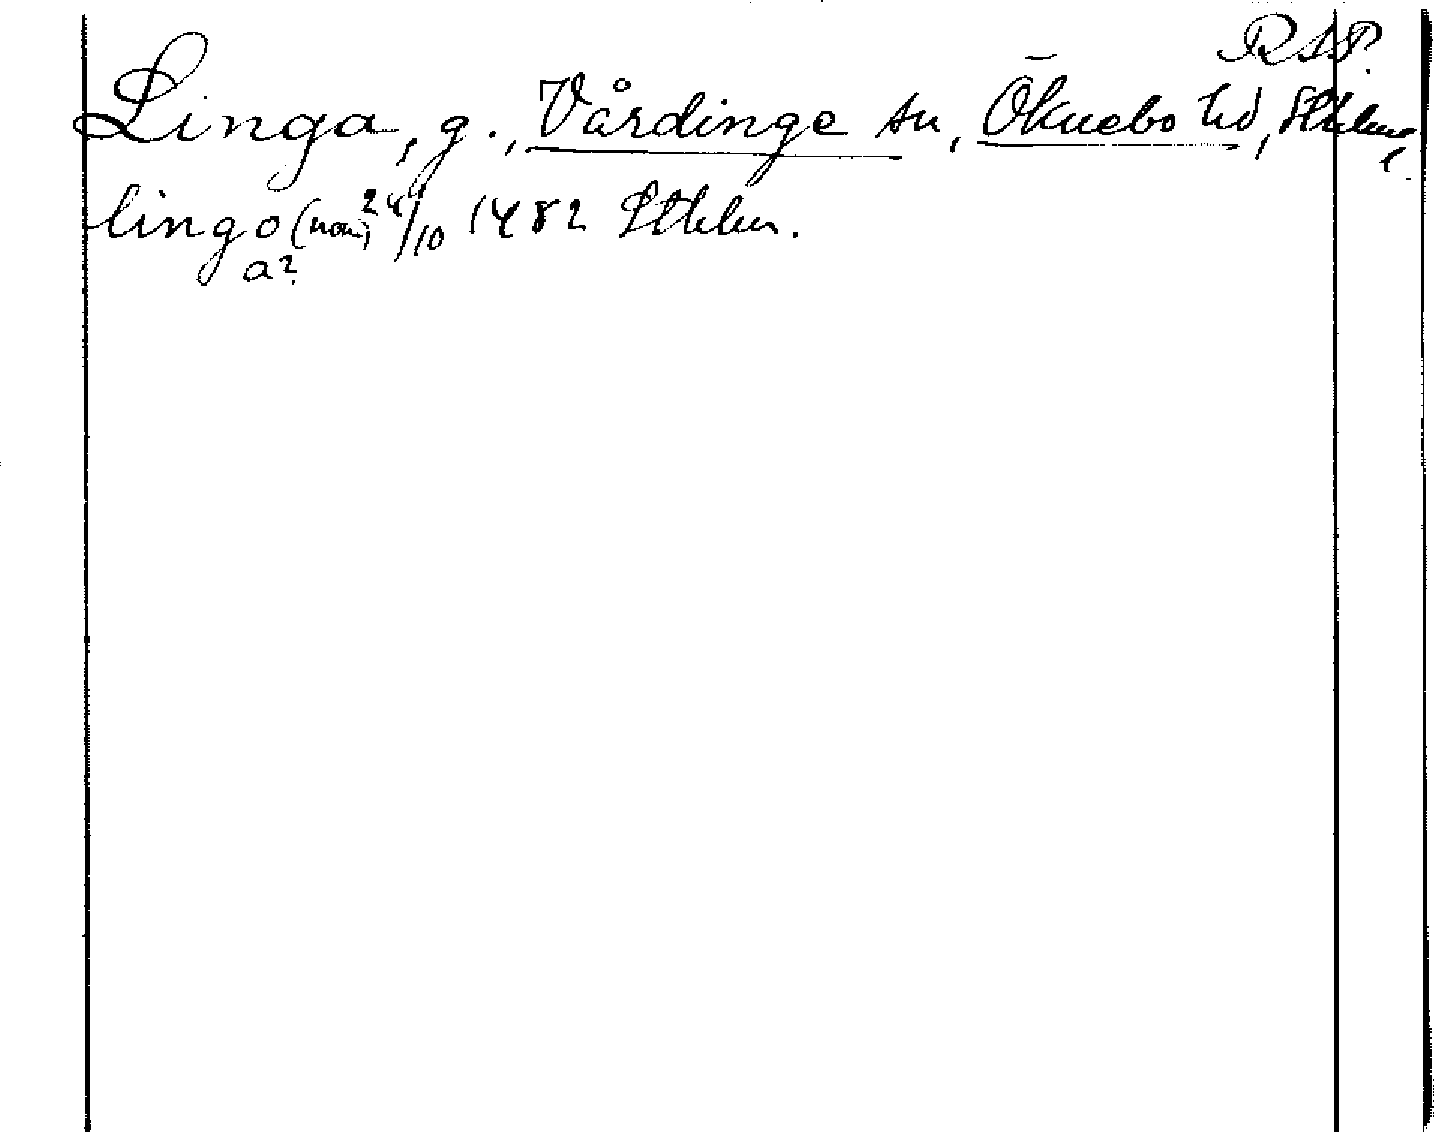 RAP.
Linga, g., Vårdinge sn, Öknebo hd, Sthlms
lingo (nom) 24/10 1482 Sthlm.
a?